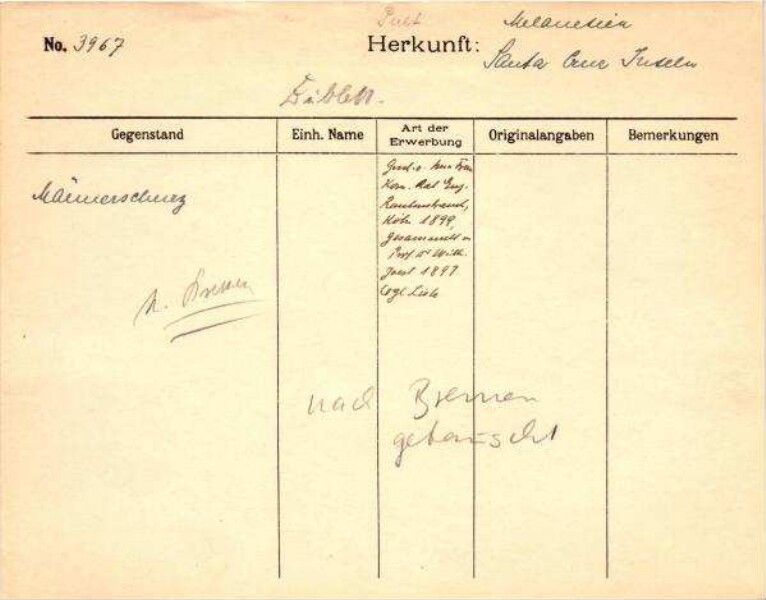 No. 3967
Herkunft: Melanesien
Santa Cruz Inseln
Dublett.
Gegenstand
Einh. Name
Art der Erwerbung
Originalangaben
Bemerkungen
Männerschurz
Gesch. v. Frau
Kom. Rat Eug.
Rautenstrauch,
Köln 1899,
Gesammelt v.
Prof. Dr Wilh.
Joest 1897
Vgl Liste
n. Bremen
nach Bremen
getauscht